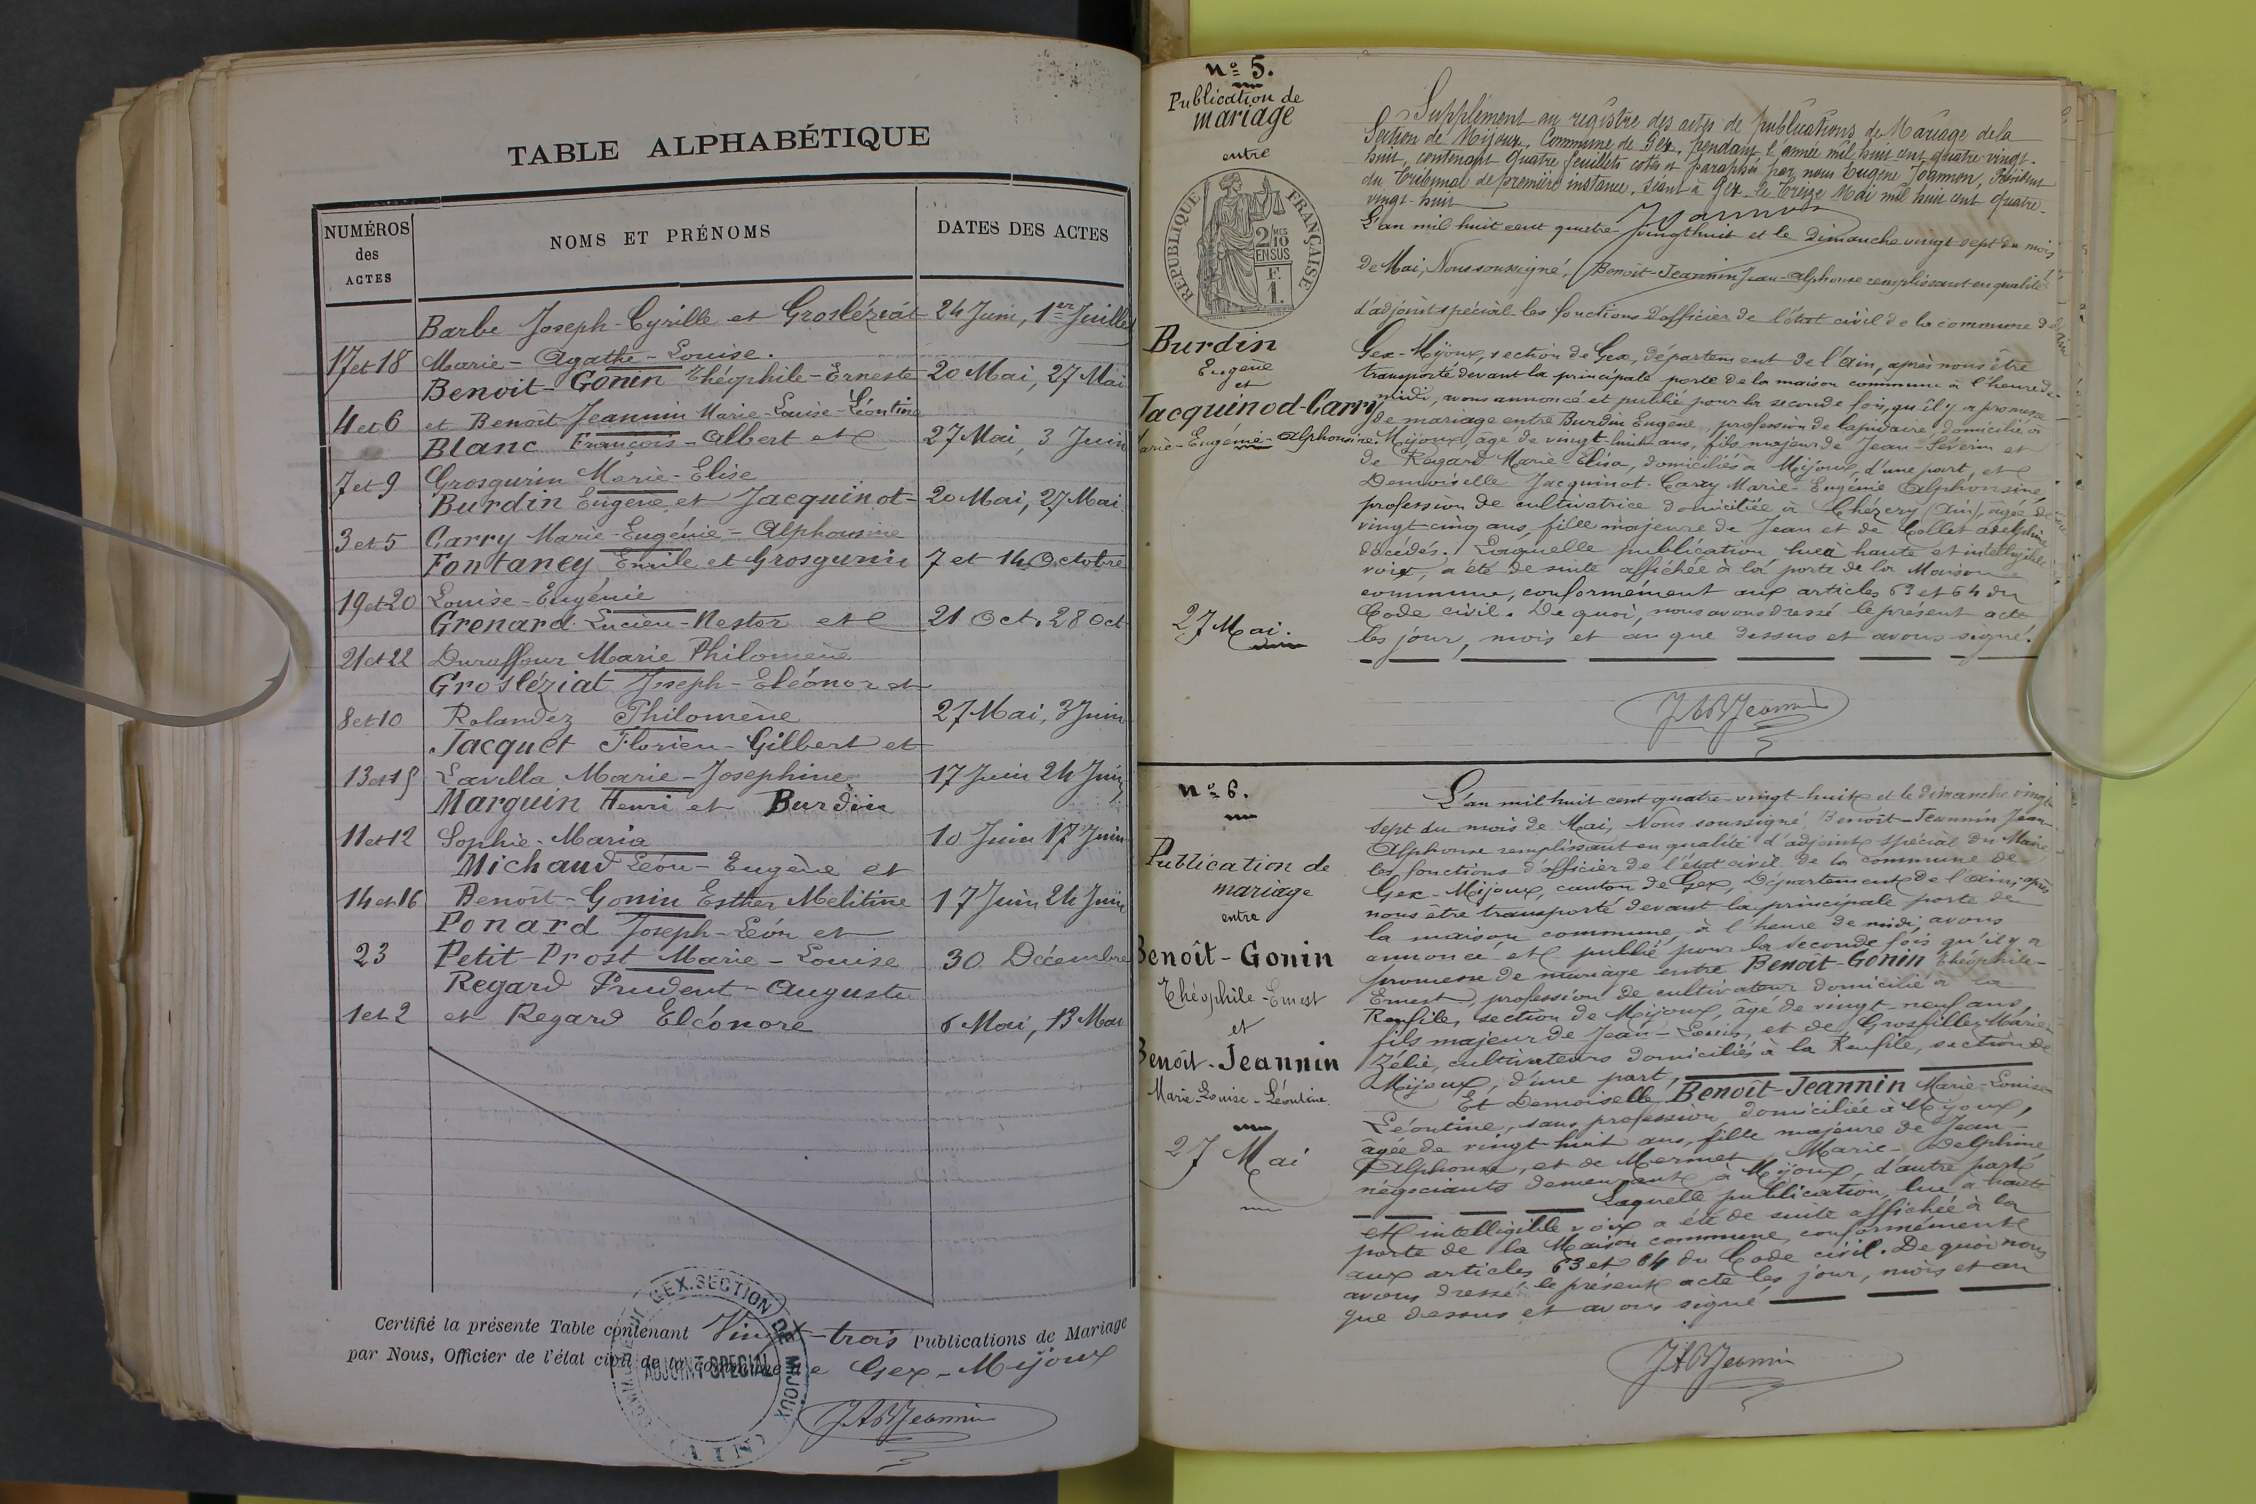 TABLE ALPHABÉTIQUE
NUMÉROS
des
ACTES
NOMS ET PRÉNOMS
DATES DES ACTES
Barbe Joseph-Cyrille et Grosléziat 24 Juin, 1er Juillet
17 et 18 Marie-Agathe-Louise.
Benoit-Gonin Théophile-Erneste 20 Mai, 27 Mai
4 et 6 et Benoît Jeannin Marie-Louise-Léontine
Blanc François-Albert et 27 Mai, 3 Juin
7 et 9 Grosgurin Marie-Elise
Burdin Eugène et Jacquinot- 20 Mai, 27 Mai
3 et 5 Carry Marie-Eugénie-Alphonsine
Fontaney Emile et Grosgurin 7 et 14 Octobre
19 et 20 Louise-Eugénie
Grenard Lucien-Nestor et 21 Oct. 28 Oct
21 et 22 Duraffour Marie Philomène
Grosléziat Joseph-Eléonor et
8 et 10 Rolandez Philomène 27 Mai, 3 Juin
Jacquet Florien-Gilbert et
13 et 15 Lavilla Marie-Josephine 17 Juin 24 Juin
Marguin Henri et Burdin
11 et 12 Sophie-Maria 10 Juin 17 Juin
Michaud Léon-Eugène et
14 et 16 Benoît-Gonin Esther Melitine 17 Juin 24 Juin
Ponard Joseph-Léon et
23 Petit-Prost Marie-Louise 30 Décembre
Regard Prudent-Auguste
1 et 2 et Regard Eléonore 6 Mai, 13 Mai
Certifié la présente Table contenant Vingt-trois Publications de Mariage
par Nous, Officier de l'état civil de la commune de Gex-Mijoux
GEX. SECTION DE MIJOUX
ADJOINT SPECIAL
(AIN)
JABJeannin
N° 5.
Publication de
mariage
entre
RÉPUBLIQUE FRANÇAISE
2/10 MES
EN SUS
F.
1.
Burdin
Eugène
et
Jacquinod-Carry
Marie-Eugénie-Alphonsine.
27 Mai.
Supplément au registre des actes de publications de Mariage de la
Section de Mijoux, Commune de Gex, pendant l'année mil huit cent quatre-vingt-
huit, contenant quatre feuillets cotés et paraphés par nous Eugène Joannon, Président
du Tribunal de première instance, séant à Gex. Le treize Mai mil huit cent quatre-
vingt-huit
L'an mil huit cent quatre-vingt huit et le Dimanche vingt sept du mois
de Mai, Nous soussigné, Benoît-Jeannin Jean-Alphonse remplissant en qualité
d'adjoint spécial les fonctions d'officier de l'état civil de la commune de
Gex-Mijoux, section de Gex, département de l'Ain, après nous être
transporté devant la principale porte de la maison commune à l'heure de
midi, avons annoncé et publié pour la seconde fois, qu'il y a promesse
de mariage entre Burdin Eugène, profession de lapidaire, domicilié à
Mijoux, âgé de vingt-huit ans, fils majeur de Jean-Séverin et
de Regard Marie-Elisa, domiciliés à Mijoux, d'une part, et
Demoiselle Jacquinot-Carry Marie-Eugénie Alphonsine
profession de cultivatrice domiciliée à Chézery (Ain), agée de
vingt cinq ans, fille majeure de Jean et de Collet Adelphine
décédés. Laquelle publication lue à haute et intelligible
voix, a été de suite affichée à la porte de la Maison
commune, conformément aux articles 63 et 64 du
Code civil. De quoi, nous avons dressé le présent acte
les jour, mois et an que dessus et avons signé.
JABJeannin
N° 6.
Publication de
mariage
entre
Benoît-Gonin
Théophile-Ernest
et
Benoît-Jeannin
Marie-Louise-Léontine.
27 Mai
L'an mil huit cent quatre-vingt-huit et le dimanche vingt
sept du mois de Mai, Nous soussigné Benoît-Jeannin Jean-
Alphonse remplissant en qualité d'adjoint spécial du Maire
les fonctions d'officier de l'état civil de la commune de
Gex-Mijoux, canton de Gex, Département de l'Ain, après
nous être transporté devant la principale porte de
la maison commune, à l'heure de midi, avons
annoncé et publié pour la seconde fois qu'il y a
promesse de mariage entre Benoît-Gonin Théophile-
Ernest, profession de cultivateur domicilié à la
Renfile, section de Mijoux, âgé de vingt-neuf ans,
fils majeur de Jean-Louis, et de Grosfilley Marie-
Zélie, cultivateurs domiciliés à la Renfile, section de
Mijoux, d'une part,
Et Demoiselle Benoît-Jeannin Marie-Louise
Léontine, sans profession, domiciliée à Mijoux,
âgée de vingt-huit ans, fille majeure de Jean-
Alphonse, et de Mermet Marie-Delphine
négociants demeurant à Mijoux, d'autre part
Laquelle publication, lue à haute
et intelligible voix a été de suite affichée à la
porte de la Maison commune, conformément
aux articles 63 et 64 du Code civil. De quoi nous
avons dressé le présent acte les jour, mois et an
que dessus et avons signé
JABJeannin